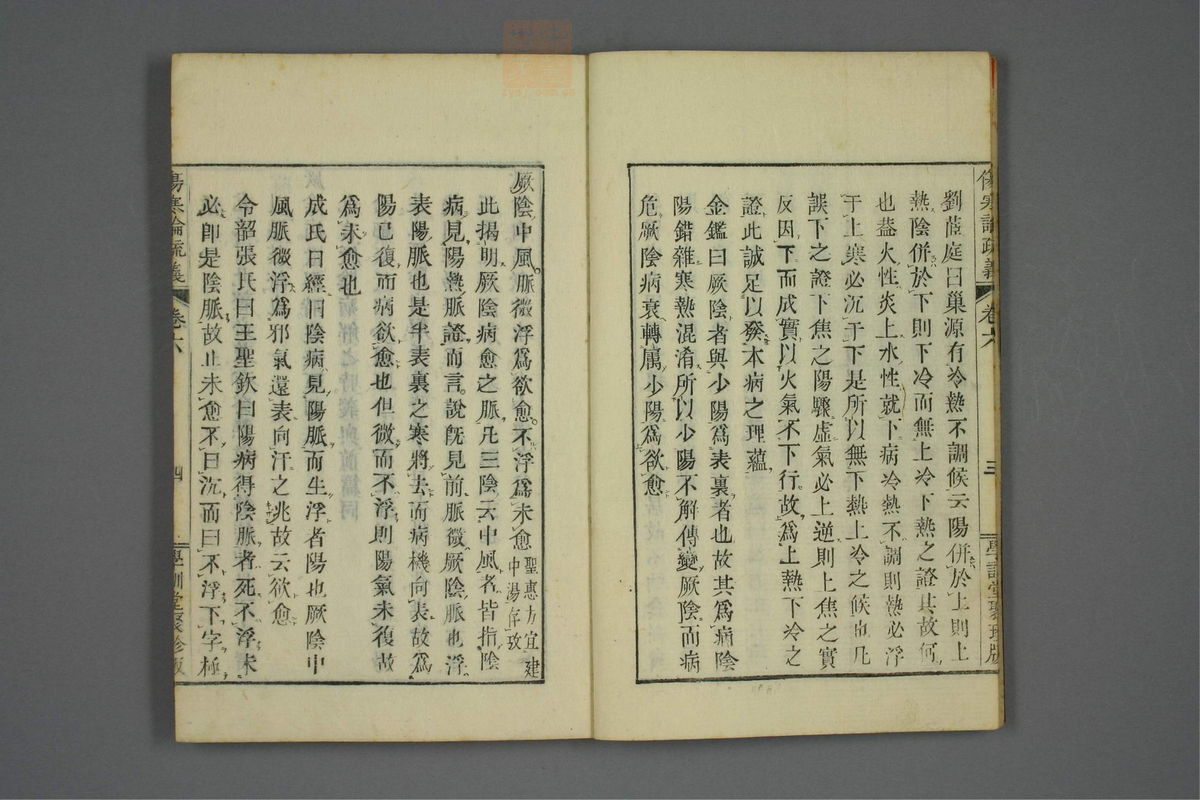 傷寒論疏義 卷六 三 學訓堂聚珍版
劉茝庭曰巢源有冷熱不調候云陽併於上則上
熱陰併於下則下冷而無上冷下熱之證其故何
也蓋火性炎上水性就下病冷熱不調則熱必浮
于上寒必沉于下是所以無下熱上冷之候也凡
誤下之證下焦之陽驟虛氣必上逆則上焦之實
反因下而成實以火氣不下行故爲上熱下冷之
證此誠足以發本病之理蘊
金鑑曰厥陰者與少陽爲表裏者也故其爲病陰
陽錯雜寒熱混淆所以少陽不解傳變厥陰而病
危厥陰病衰轉屬少陽爲欲愈
厥陰中風脈微浮爲欲愈不浮爲未愈聖惠方宜建
中湯
此揭明厥陰病愈之脈凡三陰云中風者皆指陰
病見陽熱脈證而言說旣見前脈微厥陰脈也浮
表陽脈也是半表裏之寒將去而病機向表故爲
陽已復而病欲愈也但微而不浮則陽氣未復故
爲未愈也
成氏曰經曰陰病見陽脈而生浮者陽也厥陰中
風脈微浮爲邪氣還表向汗之兆故云欲愈
令韶張氏曰王聖欽曰陽病得陰脈者死不浮未
必卽是陰脈故止未愈不曰沉而曰不浮下字極
傷寒論疏義 卷六 四 學訓堂聚珍版